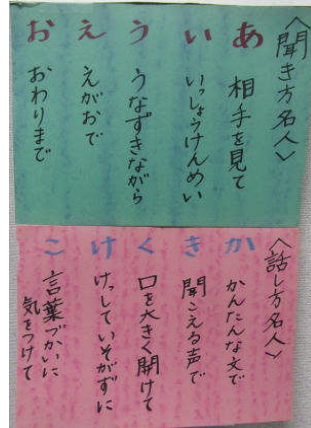 〈聞き方名人〉
あ 相手を見て
い いっしょうけんめい
う うなずきながら
え えがおで
お おわりまで
〈話し方名人〉
か かんたんな文で
き 聞こえる声で
く 口を大きく開けて
け けっしていそがずに
こ 言葉づかいに
気をつけて